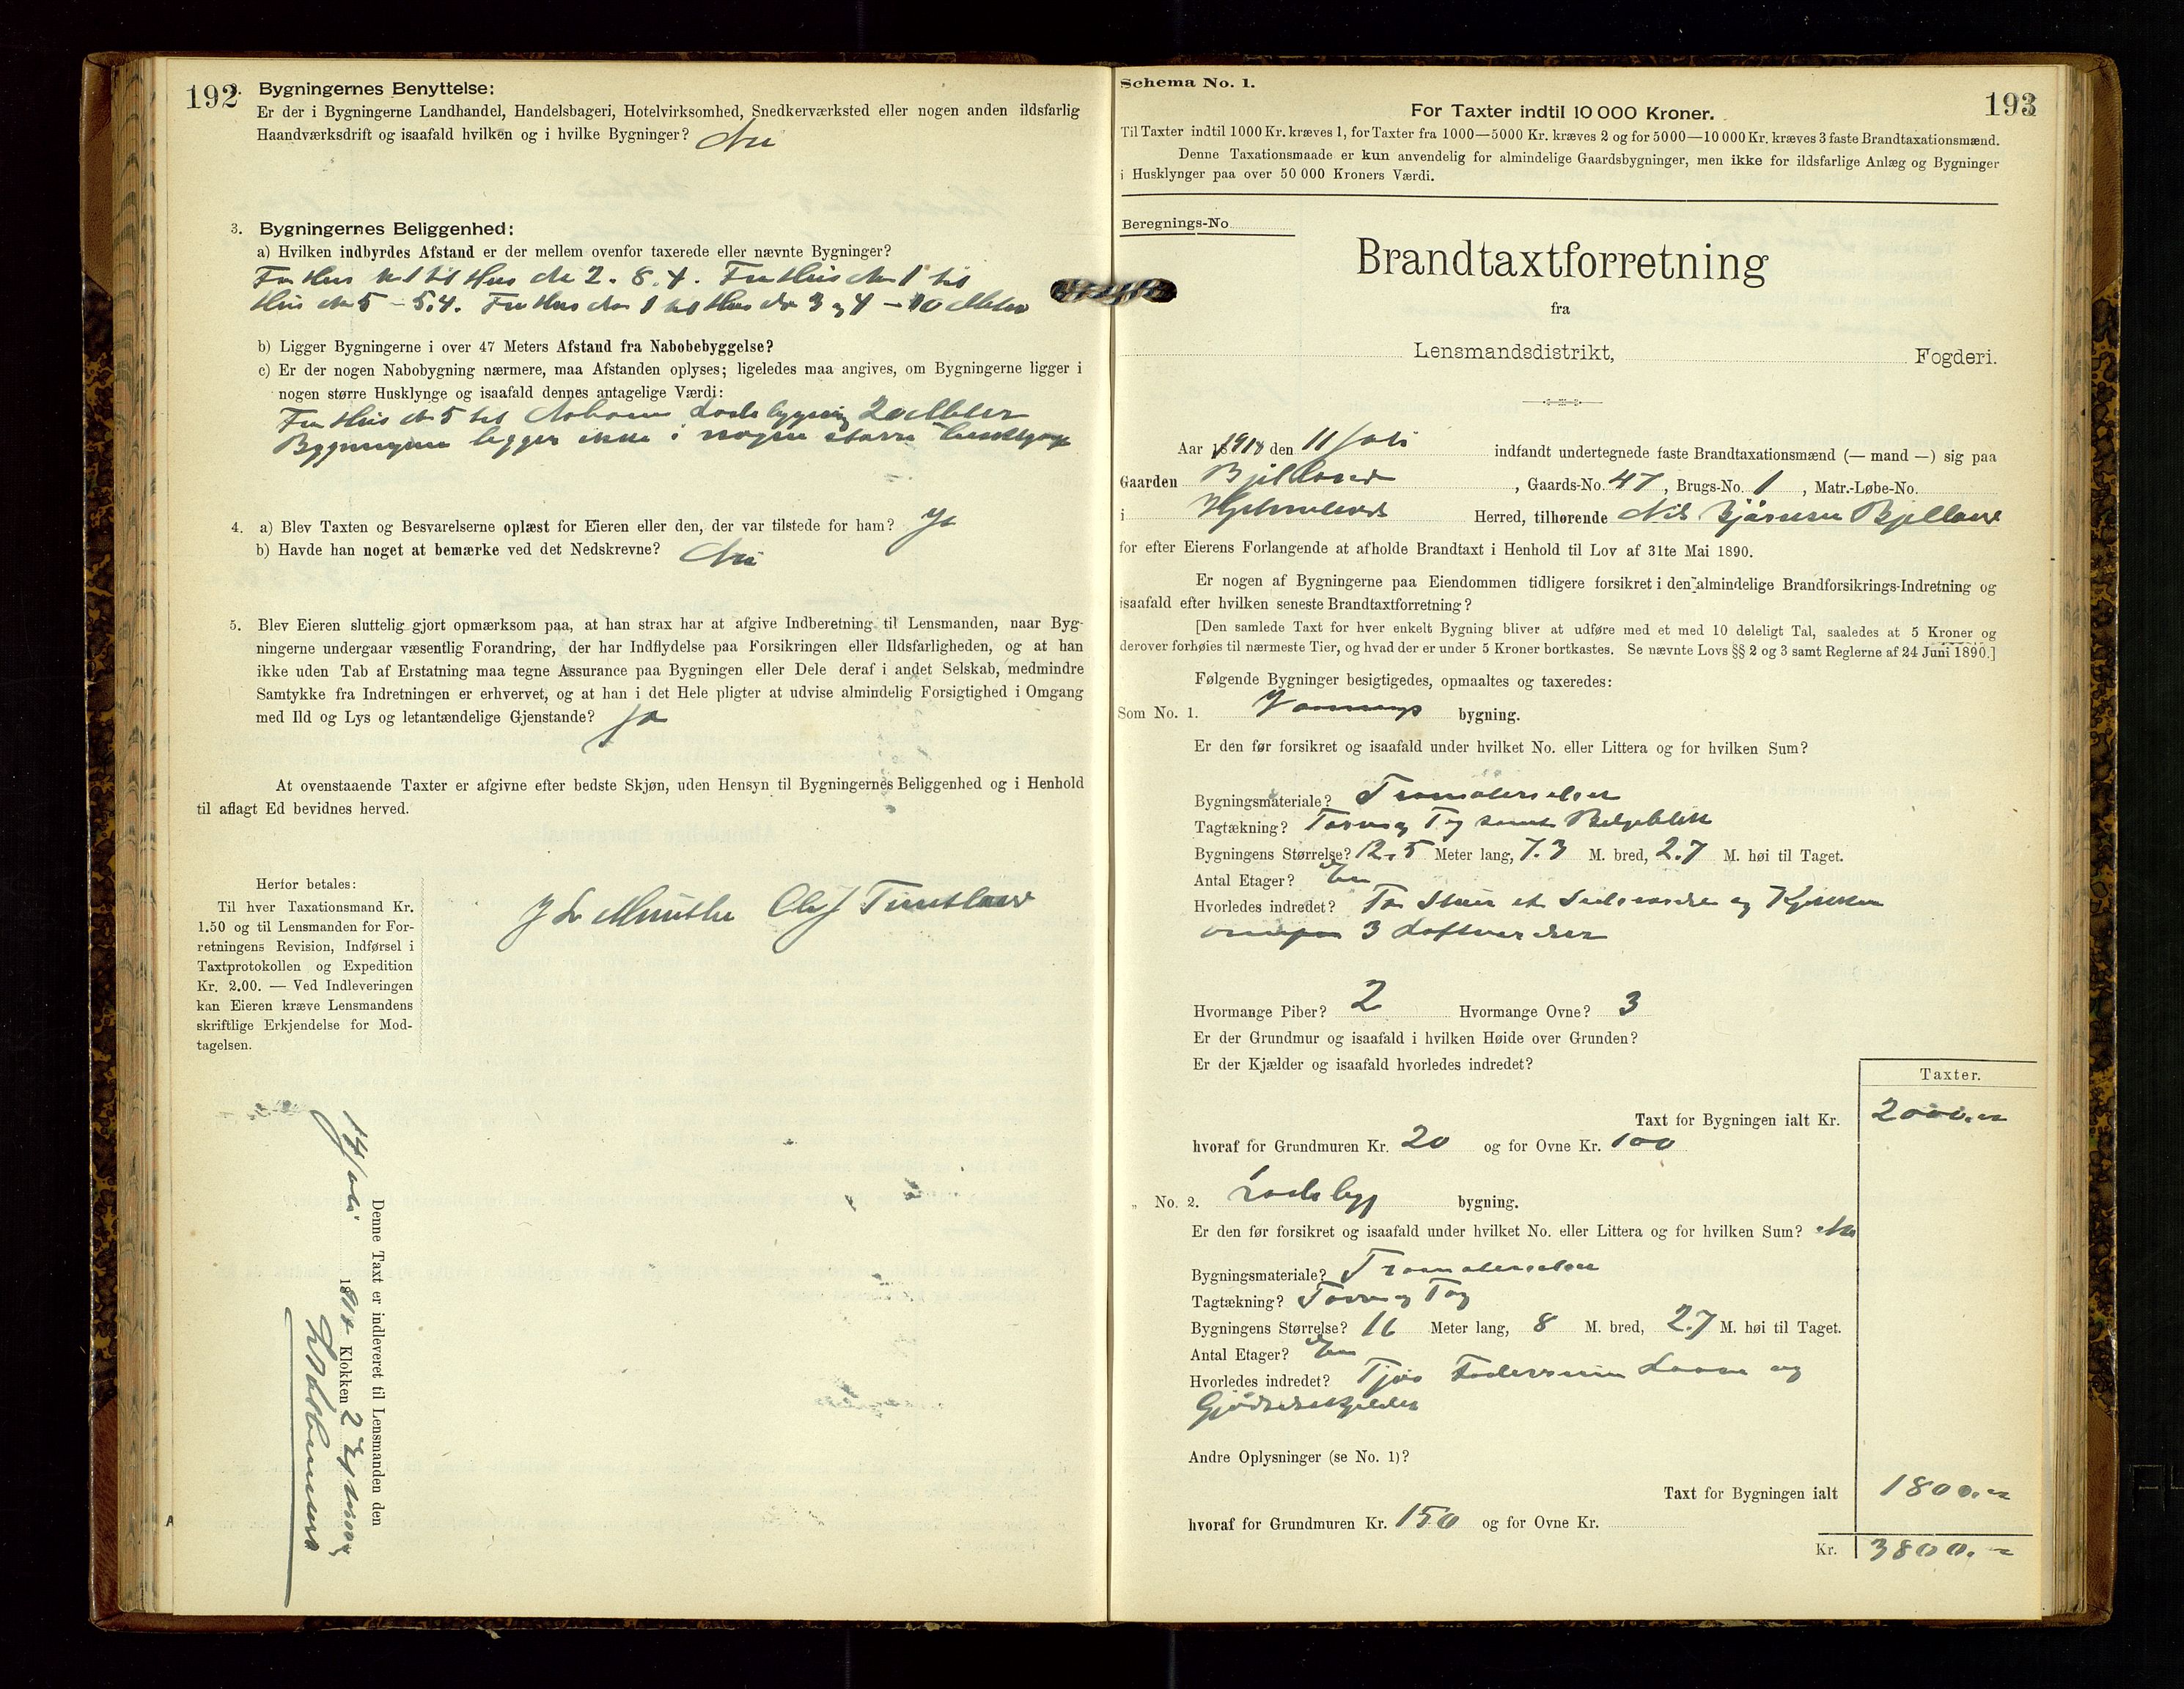 192
2. Bygningernes Benyttelse:
Er der i Bygningerne Landhandel, Handelsbageri, Hotelvirksomhed, Snedkerværksted eller nogen anden ildsfarlig
Haandværksdrift og isaafald hvilken og i hvilke Bygninger? Nei
3. Bygningernes Beliggenhed:
a) Hvilken indbyrdes Afstand er der mellem ovenfor taxerede eller nævnte Bygninger?
Fra Hus No 1 til Hus No 2. 8.4. Fra Hus No 1 til
Hus No 5 – 5.4. Fra Hus No 1 til Hus No 3 og 4 – 10 Meter
b) Ligger Bygningerne i over 47 Meters Afstand fra Nabobebyggelse?
c) Er der nogen Nabobygning nærmere, maa Afstanden oplyses; ligeledes maa angives, om Bygningerne ligger i
nogen større Husklynge og isaafald dennes antagelige Værdi:
Fra Hus No 5 til Naboens Ladebygning 20 Meter
Bygningerne ligger ikke i nogen større husklynge
4. a) Blev Taxten og Besvarelserne oplæst for Eieren eller den, der var tilstede for ham? Ja
b) Havde han noget at bemærke ved det Nedskrevne? Nei
5. Blev Eieren sluttelig gjort opmærksom paa, at han strax har at afgive Indberetning til Lensmanden, naar Byg-
ningerne undergaar væsentlig Forandring, der har Indflydelse paa Forsikringen eller Ildsfarligheden, og at han
ikke uden Tab af Erstatning maa tegne Assurance paa Bygningen eller Dele deraf i andet Selskab, medmindre
Samtykke fra Indretningen er erhvervet, og at han i det Hele pligter at udvise almindelig Forsigtighed i Omgang
med Ild og Lys og letantændelige Gjenstande? Ja
At ovenstaaende Taxter er afgivne efter bedste Skjøn, uden Hensyn til Bygningernes Beliggenhed og i Henhold
til aflagt Ed bevidnes herved.
Herfor betales:
Til hver Taxationsmand Kr.
1.50 og til Lensmanden for For-
retningens Revision, Indførsel i
Taxtprotokollen og Expedition
Kr. 2.00. — Ved Indleveringen
kan Eieren kræve Lensmandens
skriftlige Erkjendelse for Mod-
tagelsen.
Olaf
Denne Taxt er indleveret til Lensmanden den
14 Juli 1914 Klokken 2 Eftermd
A
Schema No. 1.
193
For Taxter indtil 10 000 Kroner.
Til Taxter indtil 1000 Kr. kræves 1, for Taxter fra 1000—5000 Kr. kræves 2 og for 5000—10 000 Kr. kræves 3 faste Brandtaxationsmænd.
Denne Taxationsmaade er kun anvendelig for almindelige Gaardsbygninger, men ikke for ildsfarlige Anlæg og Bygninger
i Husklynger paa over 50 000 Kroners Værdi.
Beregnings-No
Brandtaxtforretning
fra
Lensmandsdistrikt, Fogderi.
Aar 1914 den 11 Juli indfandt undertegnede faste Brandtaxationsmænd (— mand —) sig paa
Gaarden Bjelland, Gaards-No. 47, Brugs-No. 1, Matr.-Løbe-No.
i Hjelmeland Herred, tilhørende Nils Bjørnsen Bjelland
for efter Eierens Forlangende at afholde Brandtaxt i Henhold til Lov af 31te Mai 1890.
Er nogen af Bygningerne paa Eiendommen tidligere forsikret i den almindelige Brandforsikrings-Indretning og
isaafald efter hvilken seneste Brandtaxtforretning?
[Den samlede Taxt for hver enkelt Bygning bliver at udføre med et med 10 deleligt Tal, saaledes at 5 Kroner og
derover forhøies til nærmeste Tier, og hvad der er under 5 Kroner bortkastes. Se nævnte Lovs §§ 2 og 3 samt Reglerne af 24 Juni 1890.]
Følgende Bygninger besigtigedes, opmaaltes og taxeredes:
Som No. 1. Vaanings bygning.
Er den før forsikret og isaafald under hvilket No. eller Littera og for hvilken Sum?
Bygningsmateriale? Træmaterialer
Tagtækning? Torv og Tag samt Bølgeblik
Bygningens Størrelse? 12.5 Meter lang, 7.3 M. bred, 2.7 M. høi til Taget.
Antal Etager? En
Hvorledes indredet? To Stuer et Sideværelse og Kjøkken
3 Loftværelser
Hvormange Piber? 2 Hvormange Ovne? 3
Er der Grundmur og isaafald i hvilken Høide over Grunden?
Er der Kjælder og isaafald hvorledes indredet?
Taxter.
Taxt for Bygningen ialt Kr. 2000.–
hvoraf for Grundmuren Kr. 20 og for Ovne Kr. 100
„ No. 2. Ladebyg bygning.
Er den før forsikret og isaafald under hvilket No. eller Littera og for hvilken Sum? Nei
Bygningsmateriale? Træmaterialer
Tagtækning? Torv og Tag
Bygningens Størrelse? 16 Meter lang, 8 M. bred, 2.7 M. høi til Taget.
Antal Etager? En
Hvorledes indredet? Fjøs Foderrum Laave og
Gjødselskjelder
Andre Oplysninger (se No. 1)?
Taxt for Bygningen ialt 1800.–
hvoraf for Grundmuren Kr. 150 og for Ovne Kr.
Kr. 3800.–